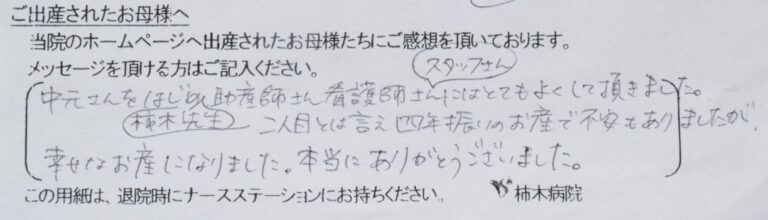 ご出産されたお母様へ
当院のホームページへ出産されたお母様たちにご感想を頂いております。
メッセージを頂ける方はご記入ください。
スタッフさん
中元さんをはじめ助産師さん看護師さんにはとてもよくして頂きました。
柿木先生
二人目とは言え四年振りのお産で不安もありましたが、
幸せなお産になりました。本当にありがとうございました。
この用紙は、退院時にナースステーションにお持ちください。 柿木病院